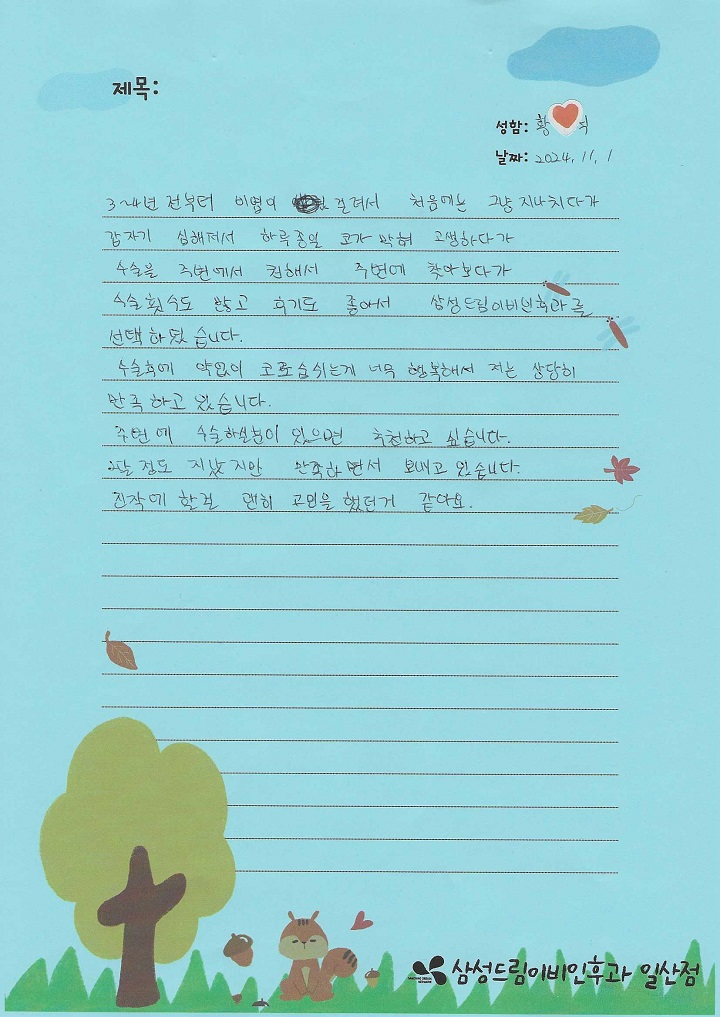 제목:
성함: 황 석
날짜: 2024. 11. 1
3~4년 전부터 비염이 걸려서 처음에는 그냥 지나치다가
갑자기 심해져서 하루종일 코가 막혀 고생하다가
수술을 주변에서 권해서 주변에 찾아보다가
수술횟수도 많고 후기도 좋아서 삼성드림이비인후과를
선택하였습니다.
수술후에 약없이 코로숨쉬는게 너무 행복해서 저는 상당히
만족하고 있습니다.
주변에 수술하실분이 있으면 추천하고 싶습니다.
2달 정도 지났지만 만족하면서 보내고 있습니다.
진작에 할걸 괜히 고민을 했던거 같아요.
삼성드림이비인후과 일산점